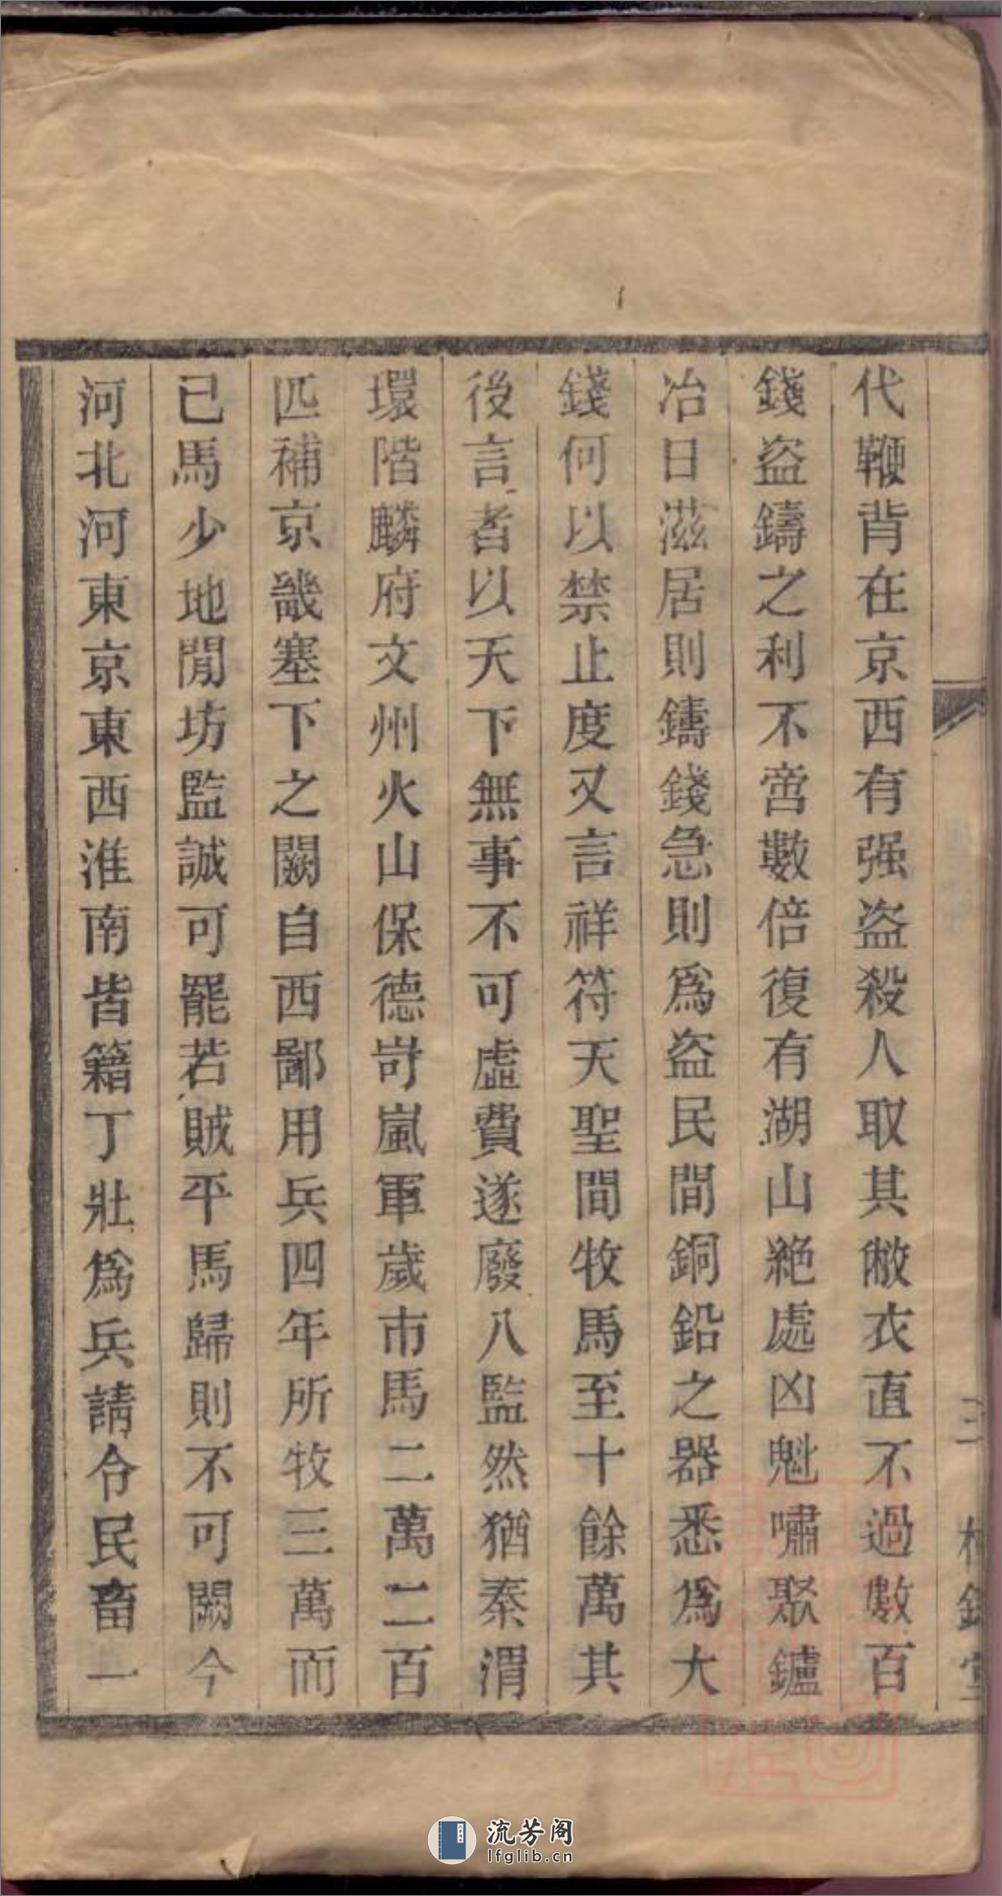 代鞭背在京西有强盗殺人取其敝衣直不過數百
錢盗鑄之利不啻數倍復有湖山絶處凶魁嘯聚鑪
冶日滋居則鑄錢急則爲盗民間銅鉛之器悉爲大
錢何以禁止度又言祥符天聖間牧馬至十餘萬其
後言者以天下無事不可虛費遂廢八監然猶秦渭
環階麟府文州火山保德岢嵐軍歲市馬二萬二百
匹補京畿塞下之闕自西鄙用兵四年所牧三萬而
已馬少地閒坊監誠可罷若賊平馬歸則不可闕今
河北河東京東西淮南皆籍丁壯爲兵請令民畜一
流芳阁
lfglib.cn